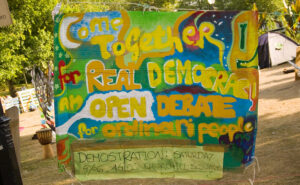 Come
Together
for REAL DEMOCRACY
an OPEN DEBATE
for ordinari people
DEMOSTRATION: SATURDAY